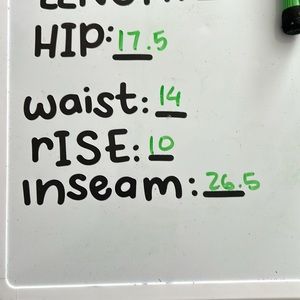 HIP: 17.5
waist: 14
rISE: 10
Inseam: 26.5